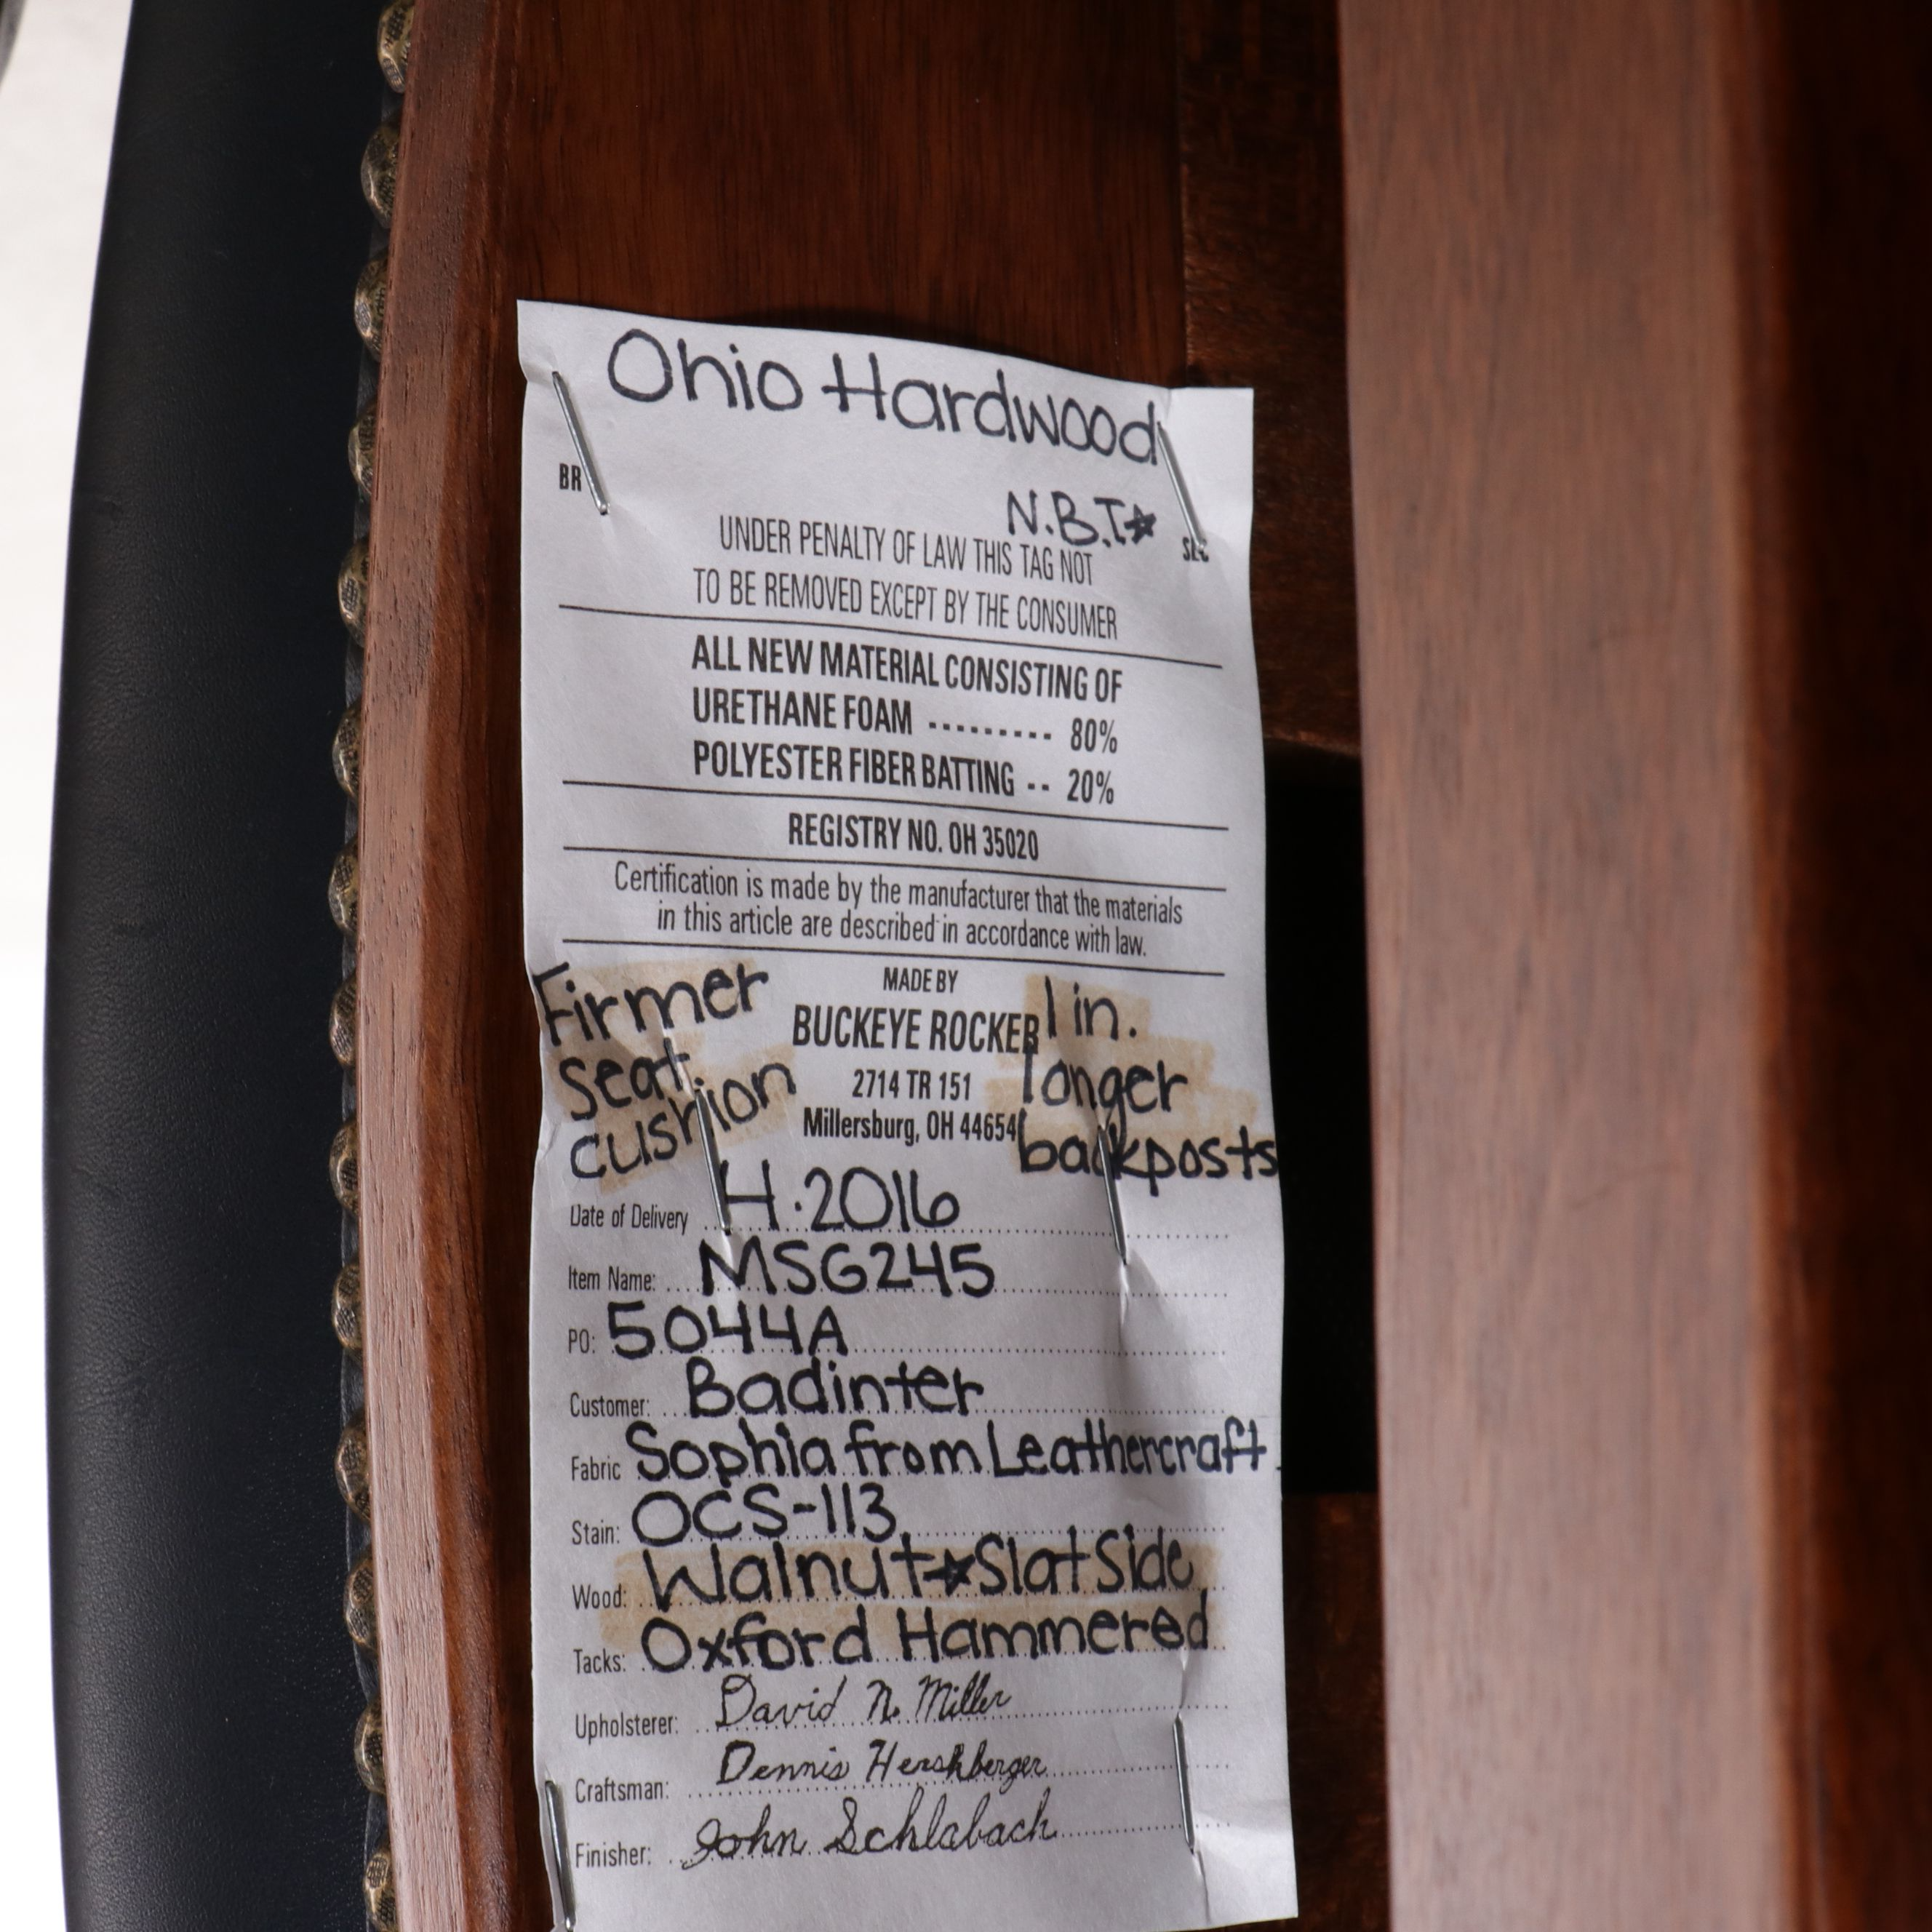 Ohio Hardwood
BR
N.B.T☆
SEC
UNDER PENALTY OF LAW THIS TAG NOT
TO BE REMOVED EXCEPT BY THE CONSUMER
ALL NEW MATERIAL CONSISTING OF
URETHANE FOAM --------- 80%
POLYESTER FIBER BATTING -- 20%
REGISTRY NO. OH 35020
Certification is made by the manufacturer that the materials
in this article are described in accordance with law.
Firmer
seat
cushion
MADE BY
BUCKEYE ROCKER
2714 TR 151
Millersburg, OH 44654
1 in.
longer
backposts
Date of Delivery H.2016
Item Name: MSG245
PO: 5044A
Customer: Badinter
Fabric Sophia from Leathercraft
Stain: OCS-113
Wood: Walnut☆Slat Side
Tacks: Oxford Hammered
Upholsterer: David N. Miller
Craftsman: Dennis Hershberger
Finisher: John Schlabach